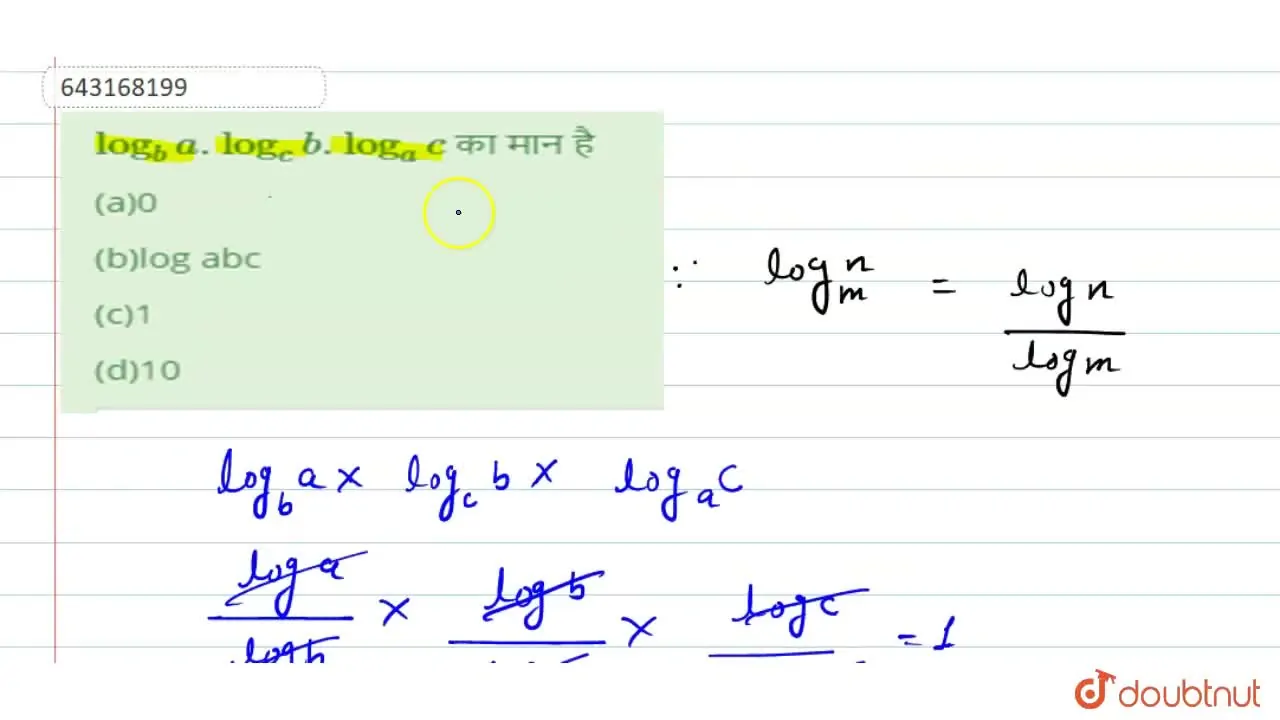 643168199
log_b a. log_c b. log_a c का मान है
(a)0
(b)log abc
(c)1
(d)10
∵ log_m n = log n / log m
log_b a × log_c b × log_a c
log a / log b × log b × log c = 1
doubtnut